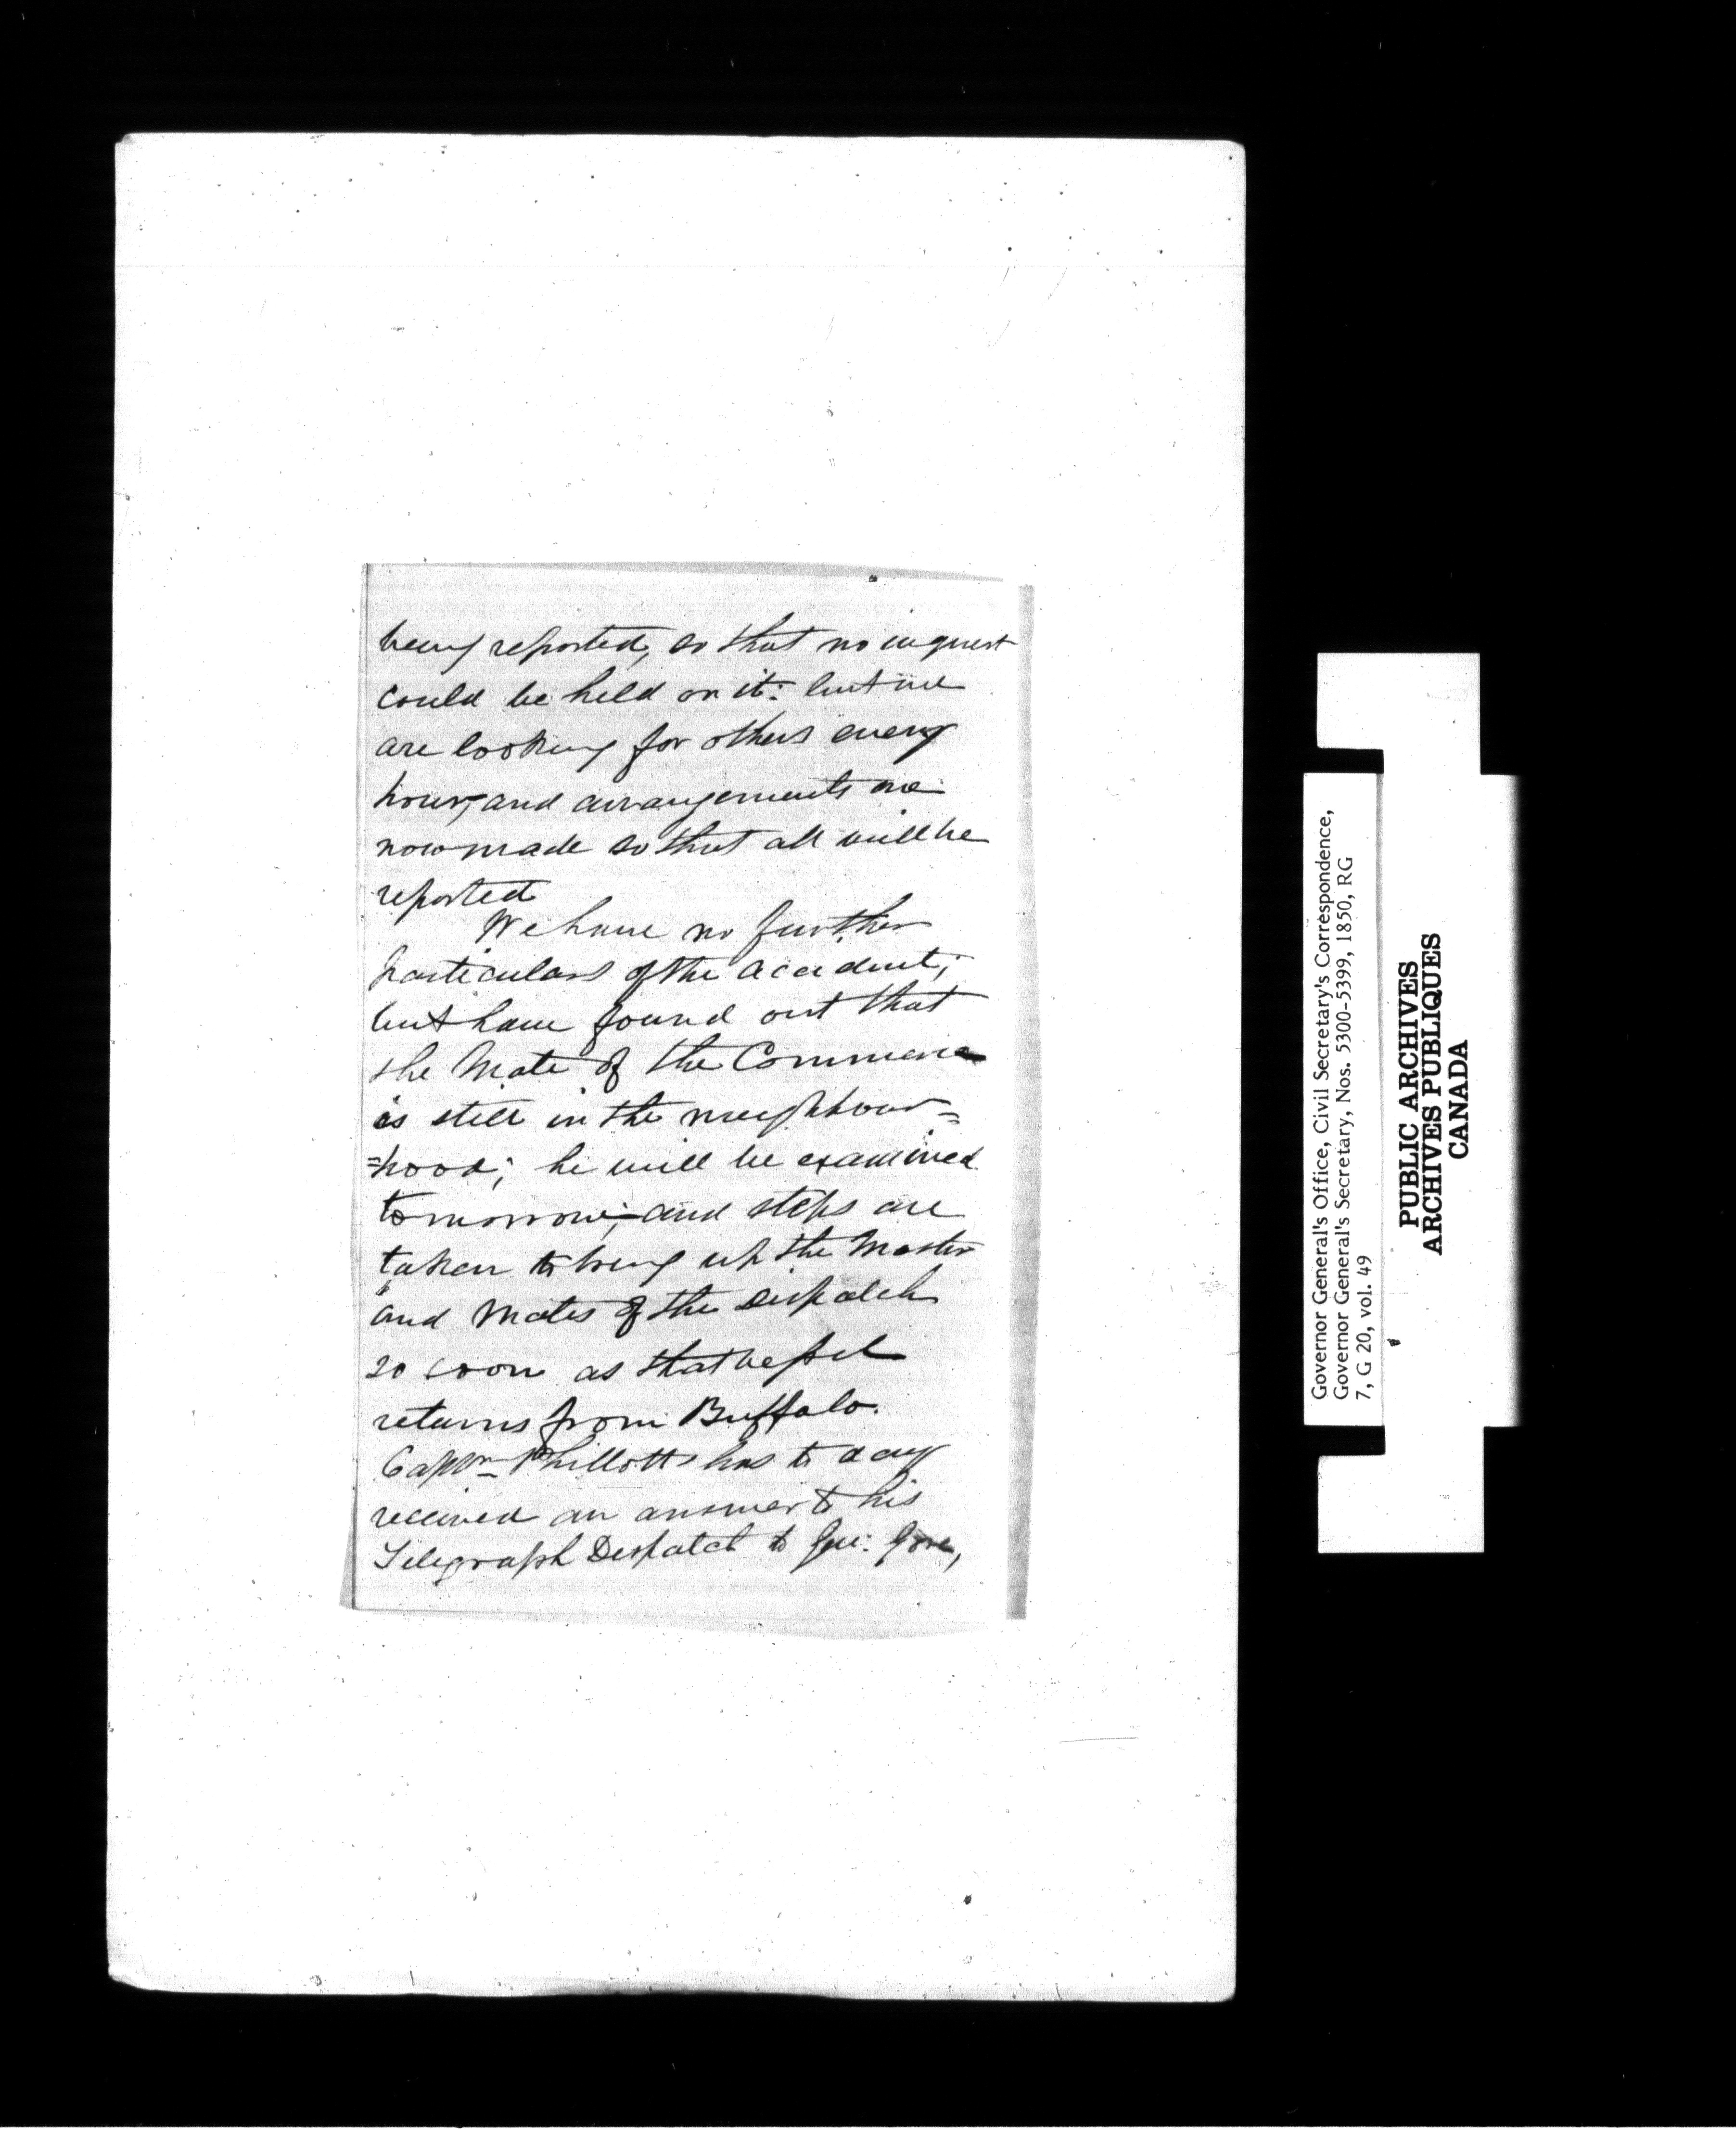 being reported, so that no inquest
could be held on it: but we
are looking for others every
hour, and arrangements are
now made so that all will be
reported
We have no further
particulars of the accident;
but have found out that
the Mate of the Commerce
is still in the neighbour=
=hood; he will be examined
tomorrow; and steps are
taken to bring up the Master
and Mates of the Dispatch
so soon as that vessel
returns from Buffalo.
Captn Phillotts has to day
received an answer to his
Telegraph Despatch to Gen: Gore,
Governor General's Office, Civil Secretary's Correspondence,
Governor General's Secretary, Nos. 5300-5399, 1850, RG
7, G 20, vol. 49
PUBLIC ARCHIVES
ARCHIVES PUBLIQUES
CANADA